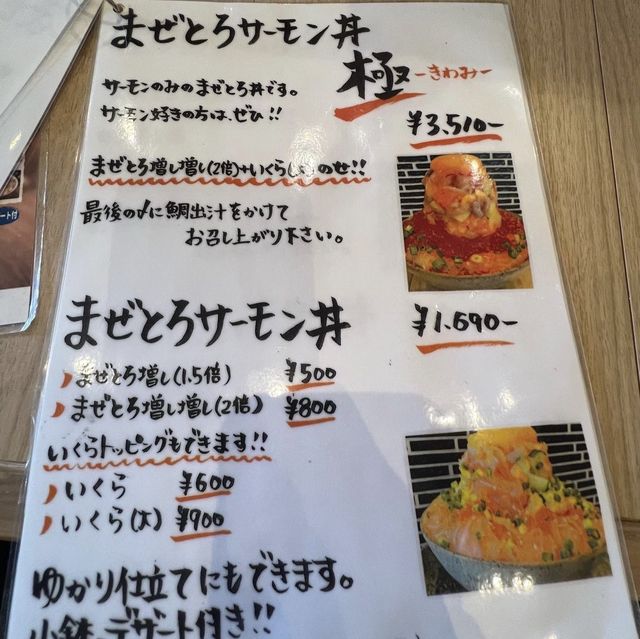 まぜとろサーモン丼
極 -きわみ-
サーモンのみのまぜとろ丼です。
サーモン好きの方は、ぜひ!!
¥3,510-
まぜとろ増し増し(2倍)+いくら(大)のせ!!
最後の〆に鯛出汁をかけて
お召し上がり下さい。
まぜとろサーモン丼
¥1,690-
まぜとろ増し(1.5倍) ¥500
まぜとろ増し増し(2倍) ¥800
いくらトッピングもできます!!
いくら ¥600
いくら(大) ¥900
ゆかり仕立てにもできます。
小鉢・デザート付き!!